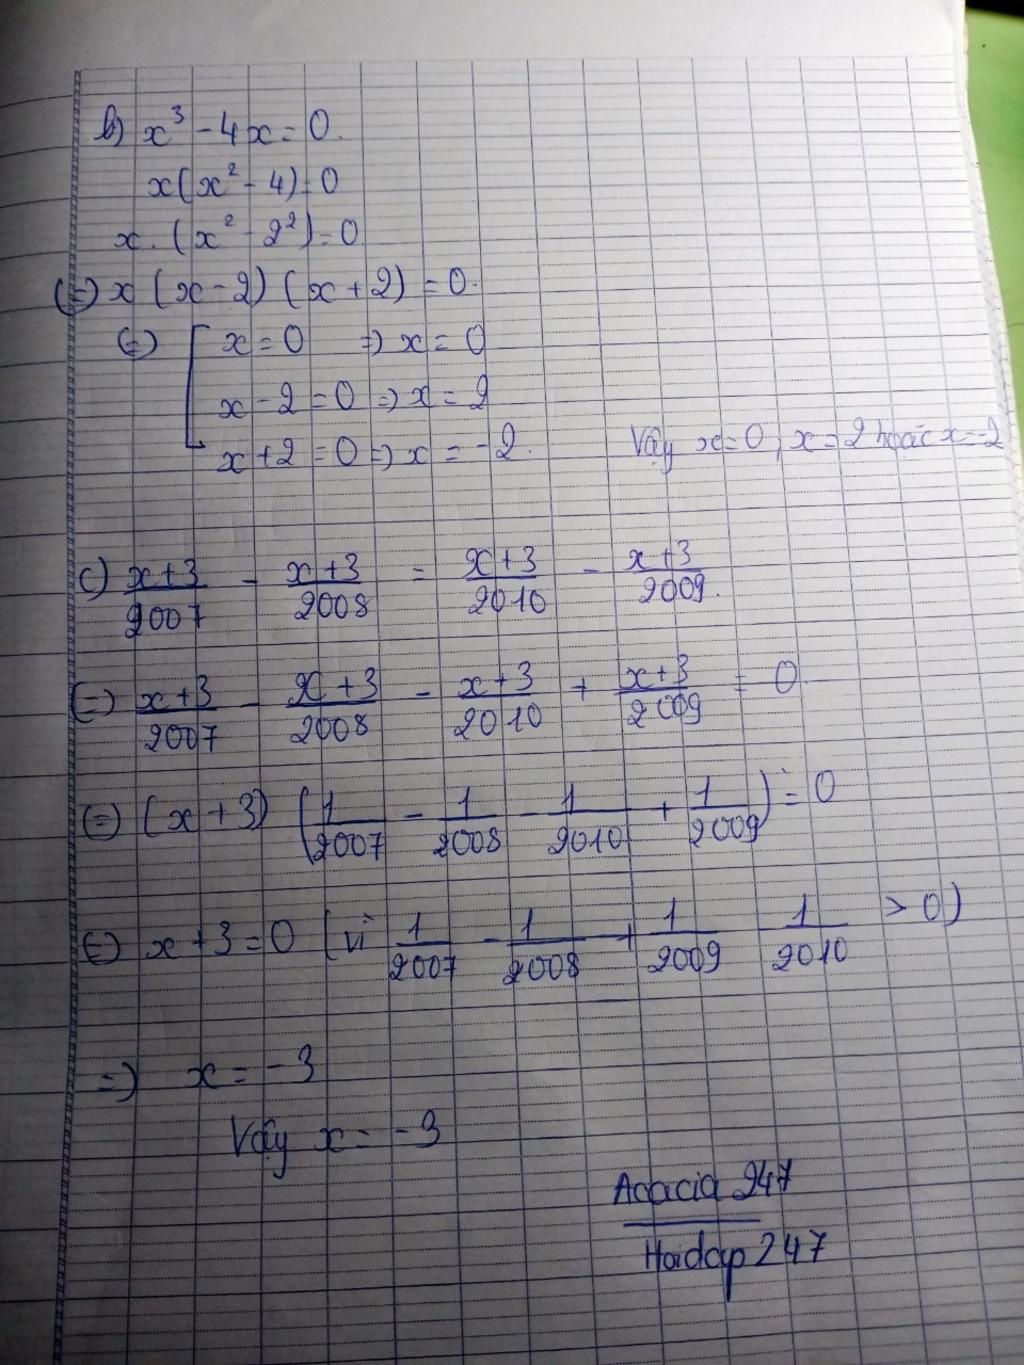 b) x³ - 4x = 0.
x(x² - 4) = 0
x. (x² - 2²) = 0
(=) x (x - 2) (x + 2) = 0.
(=) [ x = 0 => x = 0
x - 2 = 0 => x = 2
x + 2 = 0 => x = -2. Vậy x = 0, x = 2 hoặc x = -2
c) x+3/2007 - x+3/2008 = x+3/2010 - x+3/2009.
(=) x+3/2007 - x+3/2008 - x+3/2010 + x+3/2009 = 0
(=) (x + 3) (1/2007 - 1/2008 - 1/2010 + 1/2009) = 0
(=) x + 3 = 0 (vì 1/2007 - 1/2008 + 1/2009 - 1/2010 > 0)
=) x = -3
Vậy x = -3
Acacia 247
Hoidap 247